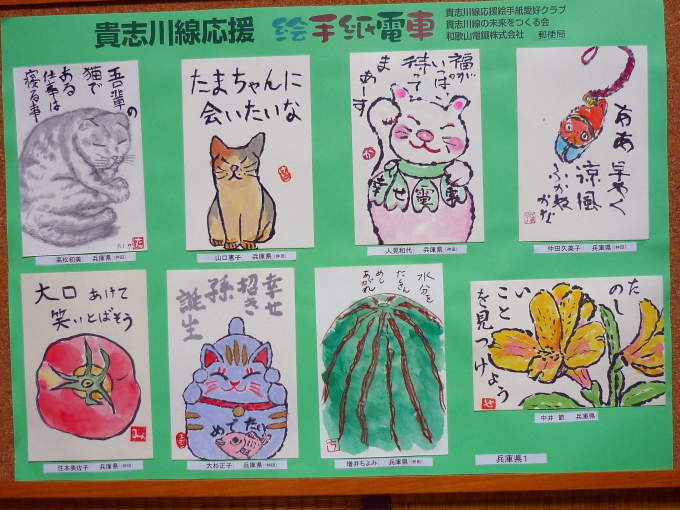 貴志川線応援 絵手紙電車
貴志川線応援絵手紙愛好クラブ
貴志川線の未来をつくる会
和歌山電鐵株式会社 郵便局
吾輩の
猫で
ある
仕事は
寝る事
たまちゃんに
会いたいな
福が
いっぱい
待って
まあーす
幸せ電車
ああ
早やく
涼風
ふかぬ
かな
高松初美 兵庫県
山口惠子 兵庫県
人見和代 兵庫県
仲田久美子 兵庫県
大口 あけて
笑いとばそう
幸せ
招き
孫
誕生
めでたい
水分を
たくさん
めし
あがれ
たのし
いこと
を見つけよう
住本美佐子 兵庫県
大杉正子 兵庫県
増井ちよみ 兵庫県
中井 節 兵庫県
兵庫県1